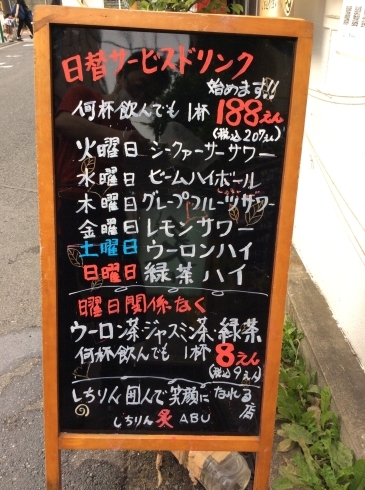 日替サービスドリンク
始めます!!
何杯飲んでも1杯188えん
(税込207えん)
火曜日 シークァーサーサワー
水曜日 ビームハイボール
木曜日 グレープフルーツサワー
金曜日 レモンサワー
土曜日 ウーロンハイ
日曜日 緑茶ハイ
曜日関係なく
ウーロン茶・ジャスミン茶・緑茶
何杯飲んでも1杯8えん
(税込9えん)
しちりん囲んで笑顔になれる店
しちりん炙ABU